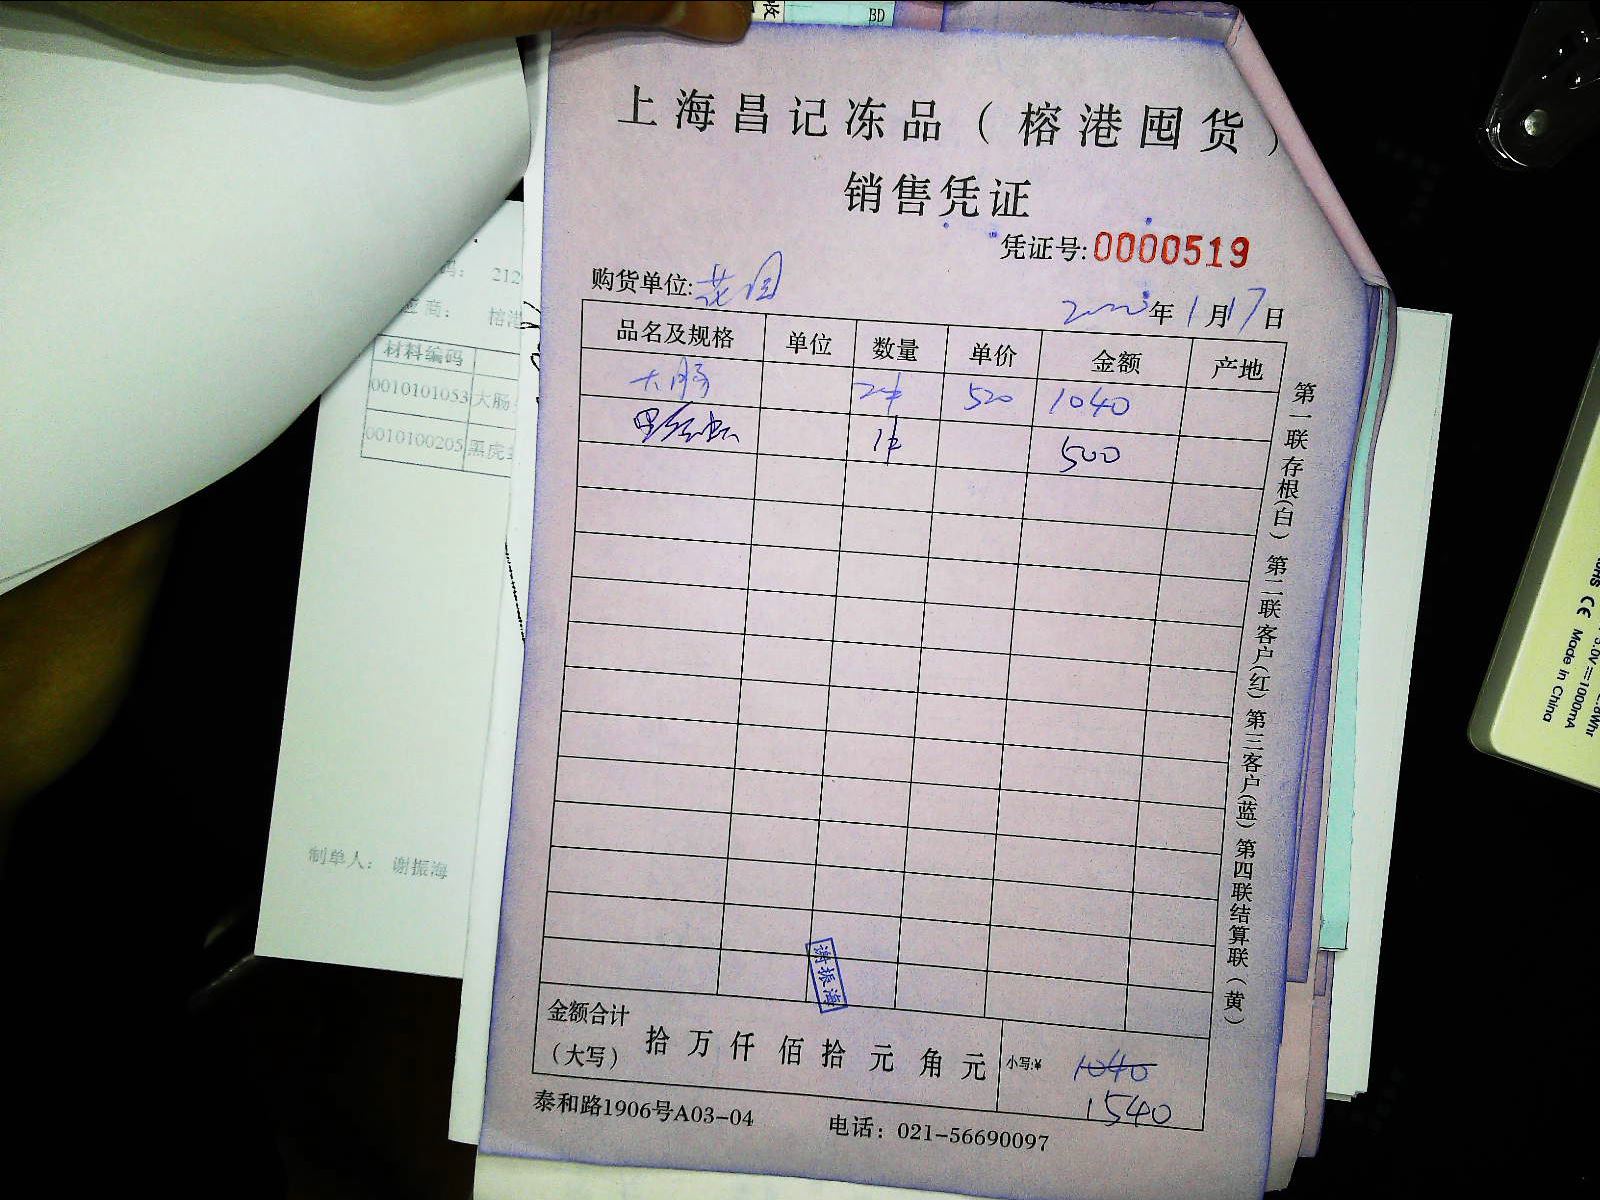 BD
上海昌记冻品（榕港囤货）
销售凭证
凭证号:0000519
购货单位:花园
年1月17日
品名及规格 单位 数量 单价 金额 产地
大肠 2件 520 1040
1件 500
谢振海
金额合计（大写） 拾 万 仟 佰 拾 元 角 元 小写:¥ 1040
1540
泰和路1906号A03-04 电话：021-56690097
第一联存根(白) 第二联客户(红) 第三客户(蓝) 第四联结算联(黄)
码： 212
应商： 榕港
材料编码
0010101053 大肠
0010100205 黑虎
制单人： 谢振海
CE
5.0V⎓1000mA
Made in China